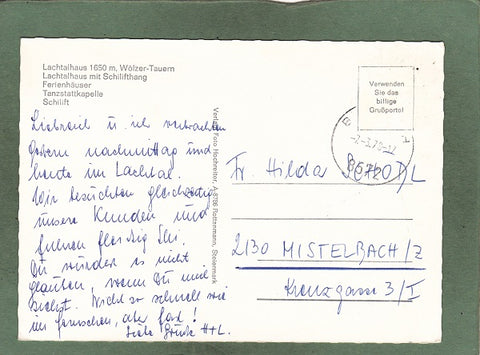 Lachtalhaus 1650 m, Wölzer-Tauern
Lachtalhaus mit Schilifthang
Ferienhäuser
Tanzstattkapelle
Schilift
Verwenden
Sie das
billige
Grußporto!
Verlag Foto Hochreiter, A-8786 Rottenmann, Steiermark
u. ich verbrachten
gestern nachmittag und
heute im Lachtal.
Wir besuchten gleichzeitig
unsere Kunden und
fuhren fleißig Ski.
Du würdest es nicht
glauben, wenn Du mich
siehst. Nicht so schnell wie
im Fernsehen, aber fast!
Liebe Grüße H+L.
Fr. Hilda
2130 MISTELBACH/Z
Kreuzgasse 3/I